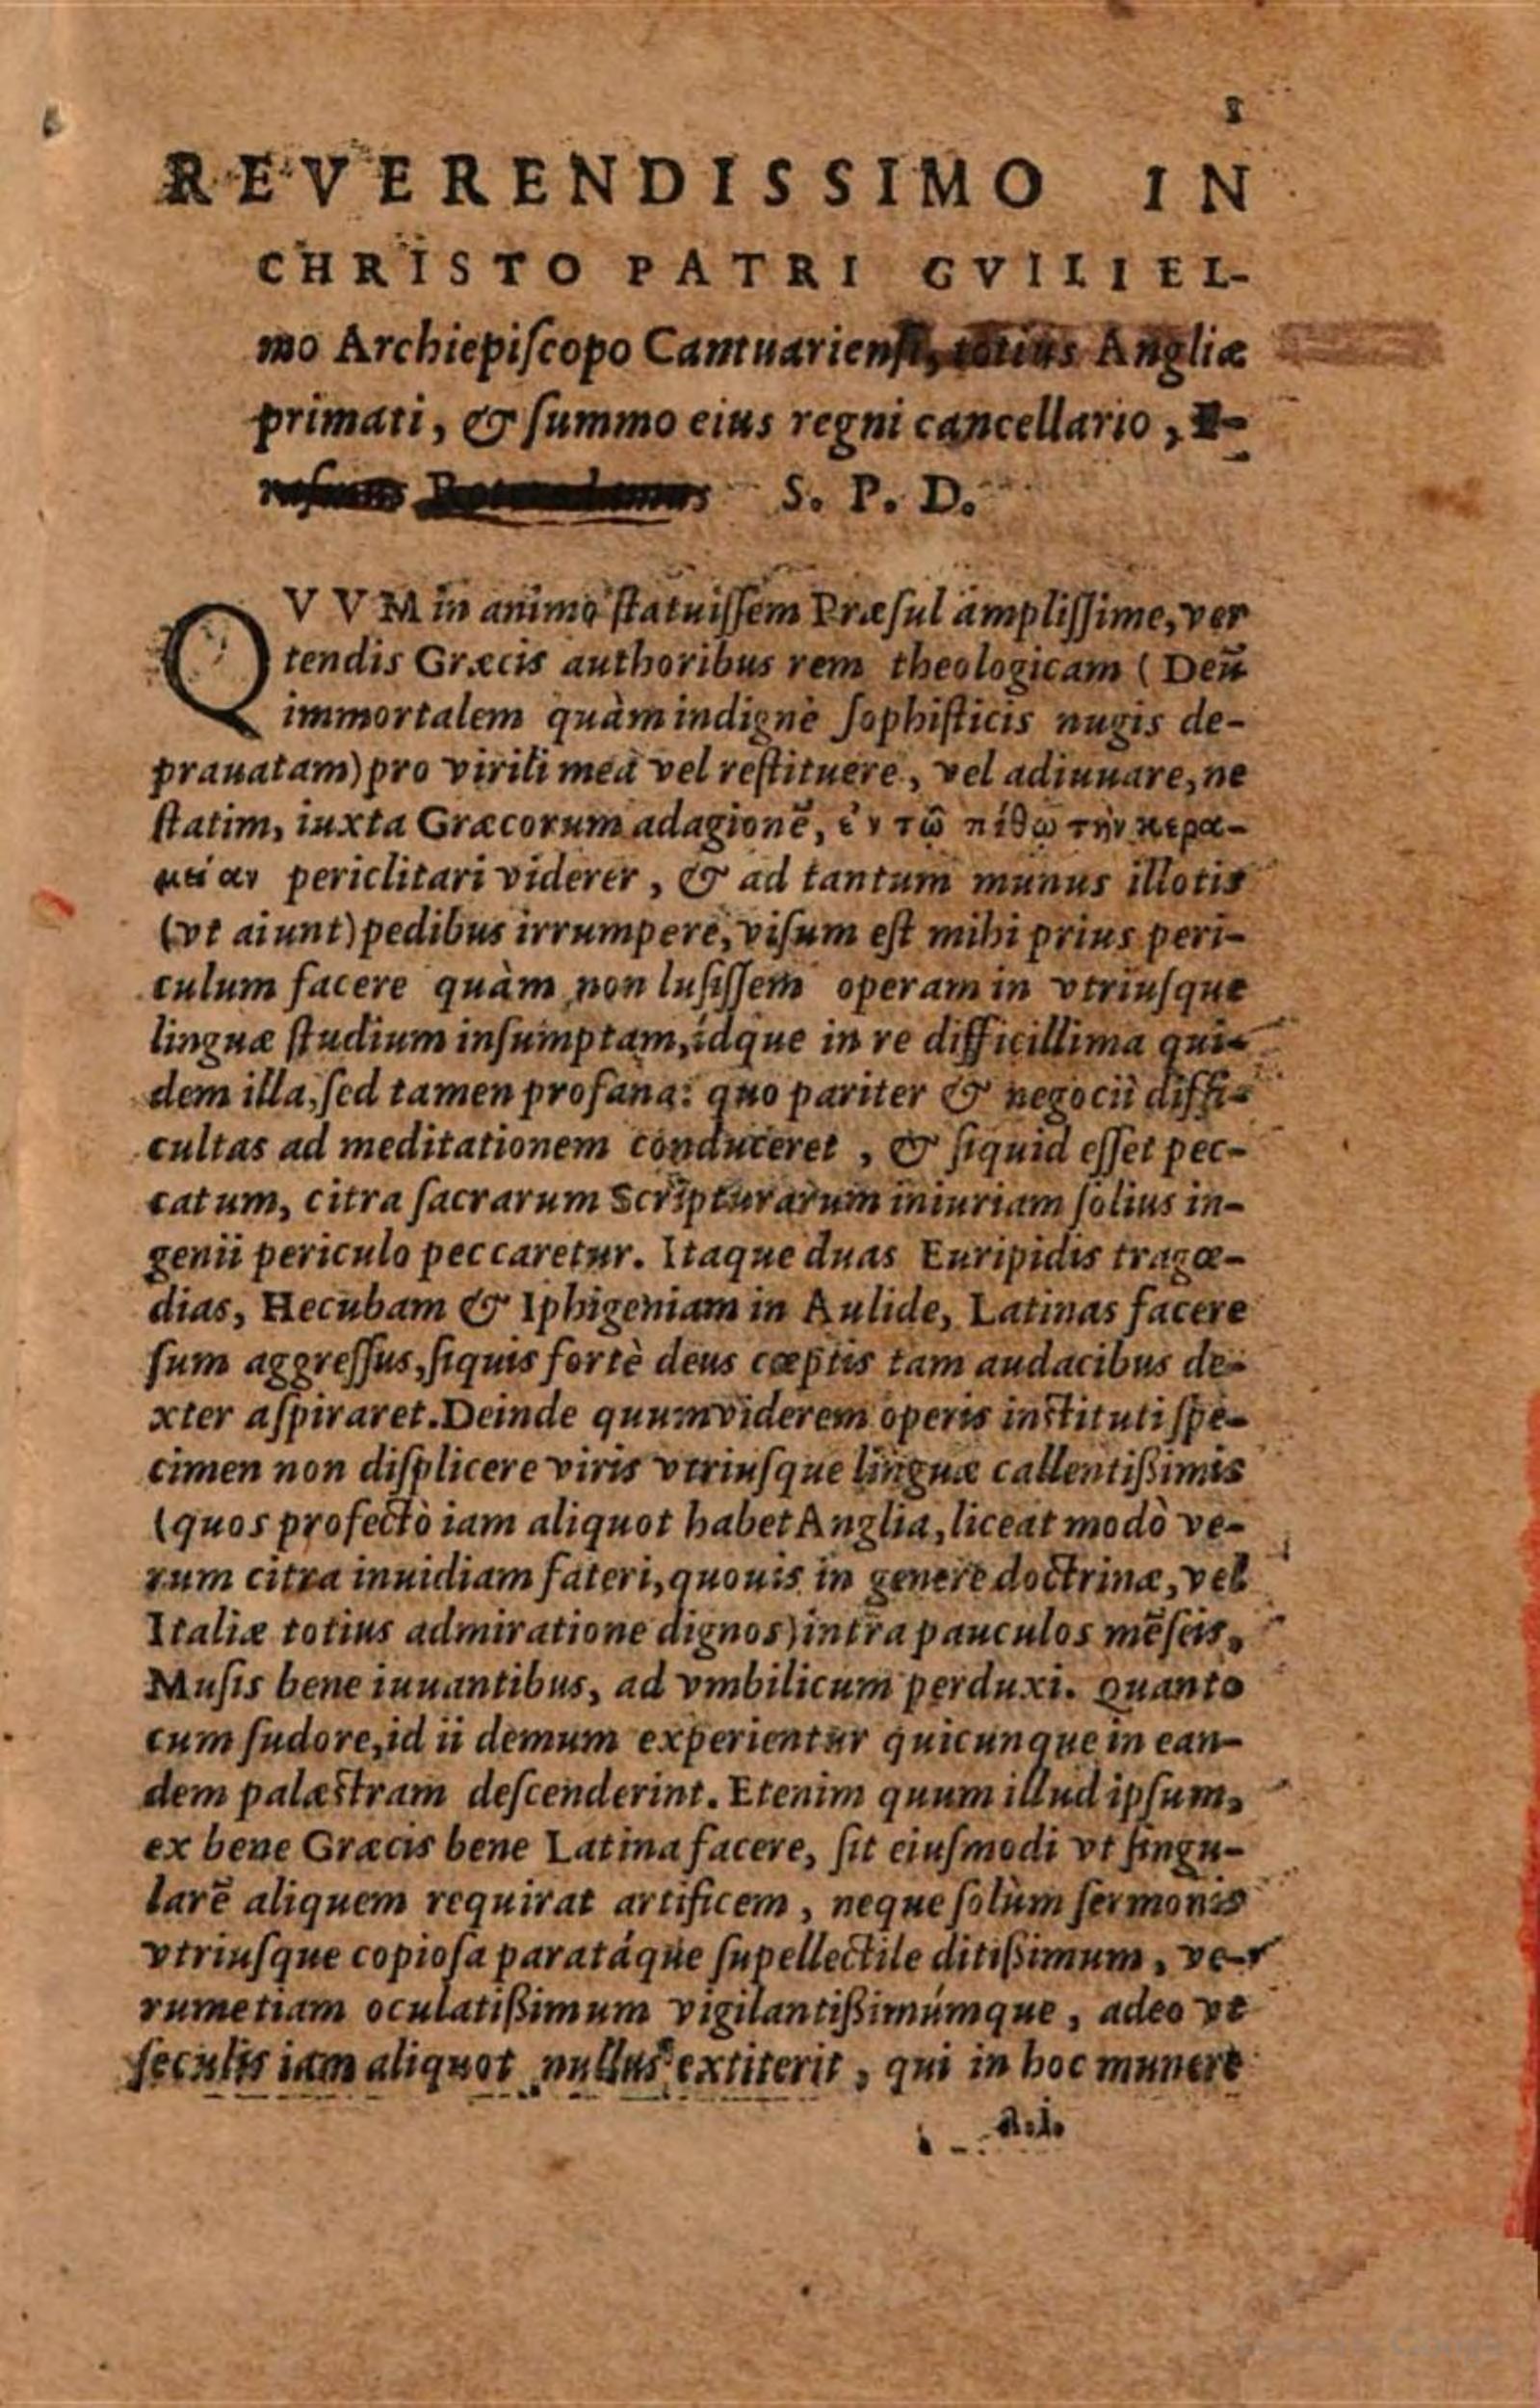 REVERENDISSIMO IN
CHRISTO PATRI GVILIEL-
mo Archiepiſcopo Cantuarienſi, totius Angliæ
primati, & ſummo eius regni cancellario,
S. P. D.
QVVM in animo ſtatuiſſem Præſul ampliſſime, ver
tendis Græcis authoribus rem theologicam (Deū
immortalem quàm indignè ſophiſticis nugis de-
prauatam) pro virili mea vel reſtituere, vel adiuuare, ne
ſtatim, iuxta Græcorum adagionē, ἐν τῶ πίθω τὴν κερα-
μείαν periclitari viderer, & ad tantum munus illotis
(vt aiunt) pedibus irrumpere, viſum eſt mihi prius peri-
culum facere quàm non luſiſſem operam in vtriuſque
linguæ ſtudium inſumptam, idque in re difficillima qui-
dem illa, ſed tamen profana: quo pariter & negocii diffi-
cultas ad meditationem conduceret, & ſiquid eſſet pec-
catum, citra ſacrarum Scripturarum iniuriam ſolius in-
genii periculo peccaretur. Itaque duas Euripidis tragœ-
dias, Hecubam & Iphigeniam in Aulide, Latinas facere
ſum aggreſſus, ſiquis fortè deus cœptis tam audacibus de-
xter aſpiraret. Deinde quum viderem operis inſtituti ſpe-
cimen non diſplicere viris vtriuſque linguæ callentißimis
(quos profectò iam aliquot habet Anglia, liceat modò ve-
rum citra inuidiam fateri, quouis in genere doctrinæ, vel
Italiæ totius admiratione dignos) intra pauculos mēſeis,
Muſis bene iuuantibus, ad vmbilicum perduxi. Quanto
cum ſudore, id ii demum experientur quicunque in ean-
dem palæſtram deſcenderint. Etenim quum illud ipſum,
ex bene Græcis bene Latina facere, ſit eiuſmodi vt ſingu-
larē aliquem requirat artificem, neque ſolùm ſermonis
vtriuſque copioſa paratáque ſupellectile ditißimum, ve-
rumetiam oculatißimum vigilantißimúmque, adeo vt
ſeculis iam aliquot nullus extiterit, qui in hoc munere
a.i.